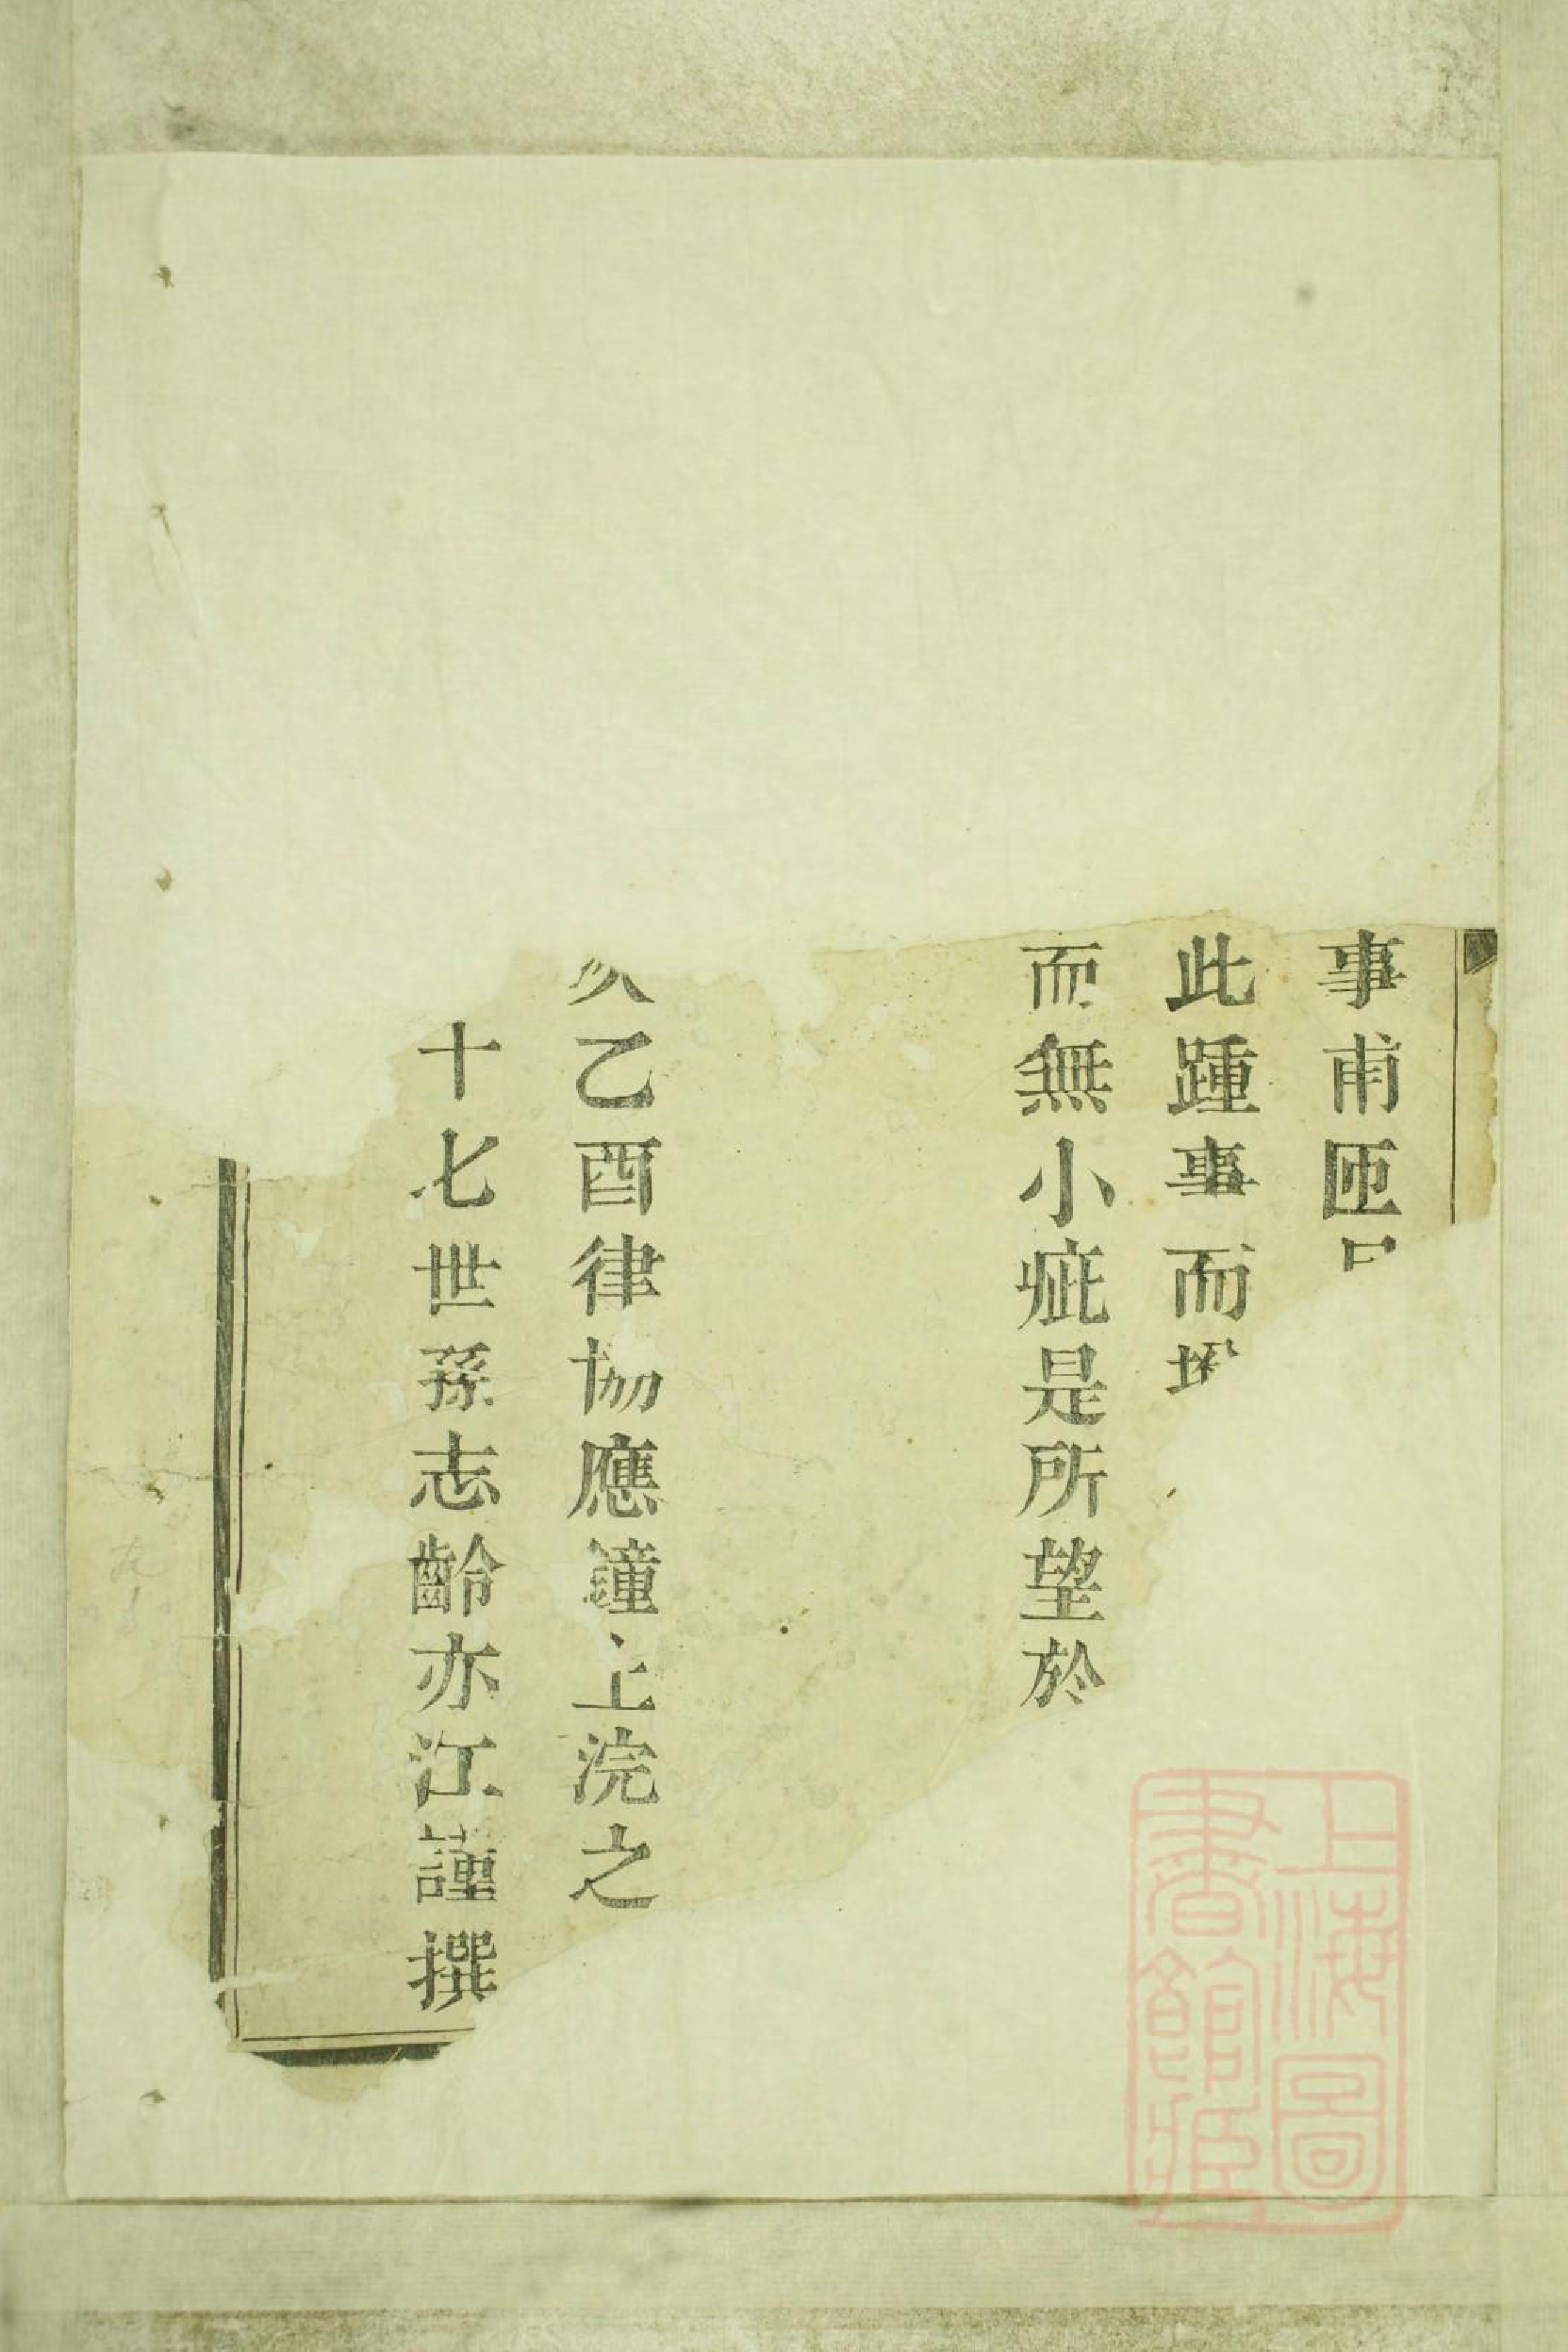 事甫匝
此踵事而增
而無小疵是所望於
次乙酉律協應鐘上浣之
十七世孫志齡亦江謹撰
上海圖
書館藏